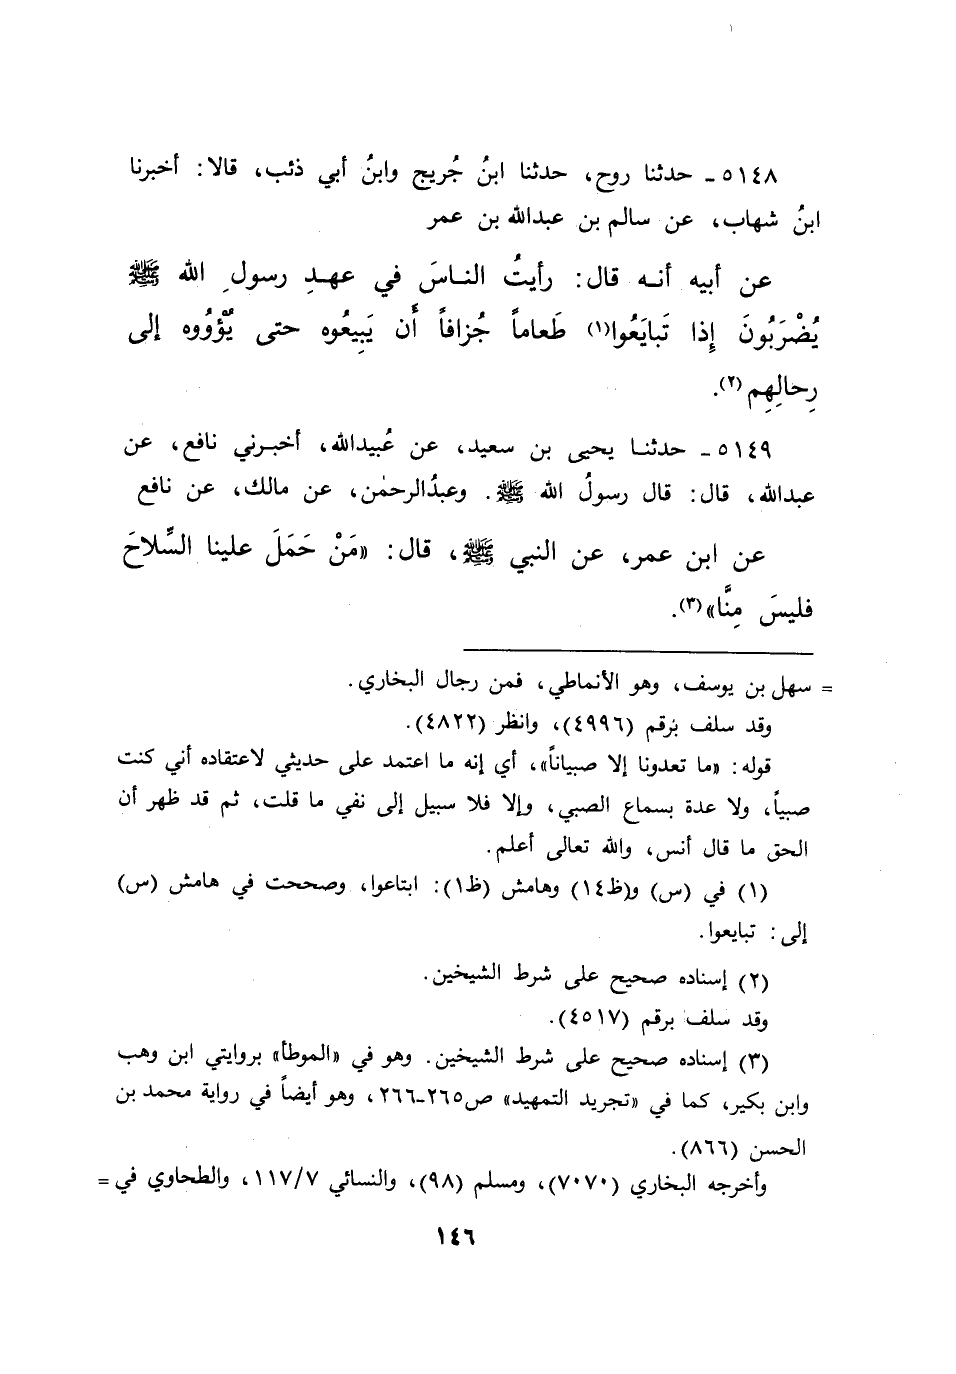 ٥١٤٨ـ حدثنا روح، حدثنا ابنُ جُريج وابنُ أبي ذئب، قالا: أخبرنا
ابنُ شهاب، عن سالم بن عبدالله بن عمر
عن أبيه أنـه قال: رأيتُ النـاسَ في عهـدِ رسولِ الله ﷺ
يُضْرَبُونَ إِذا تَبايَعُوا(١) طَعاماً جُزافاً أَن يَبِيعُوه حتى يُؤْوُوه إلى
رِحالِهِم(٢).
٥١٤٩ـ حدثنـا يحيى بن سعيد، عن عُبيدالله، أخبـرني نافع، عن
عبدالله، قال: قال رسولُ الله ﷺ. وعبدُالرحمٰن، عن مالك، عن نافع
عن ابن عمر، عن النبي ﷺ، قال: «مَنْ حَمَلَ علينا السِّلاحَ
فليسَ مِنَّا»(٣).
= سهل بن يوسف، وهو الأنماطي، فمن رجال البخاري.
وقد سلف برقم (٤٩٩٦)، وانظر (٤٨٢٢).
قوله: «ما تعدونا إلا صبياناً»، أي إنه ما اعتمد على حديثي لاعتقاده أني كنت
صبياً، ولا عدة بسماع الصبي، وإلا فلا سبيل إلى نفي ما قلت، ثم قد ظهر أن
الحق ما قال أنس، والله تعالى أعلم.
(١) في (س) و(ظ١٤) وهامش (ظ١): ابتاعوا، وصححت في هامش (س)
إلى: تبايعوا.
(٢) إسناده صحيح على شرط الشيخين.
وقد سلف برقم (٤٥١٧).
(٣) إسناده صحيح على شرط الشيخين. وهو في «الموطأ» بروايتي ابن وهب
وابن بكير، كما في «تجريد التمهيد» ص٢٦٥-٢٦٦، وهو أيضاً في رواية محمد بن
الحسن (٨٦٦).
وأخرجه البخاري (٧٠٧٠)، ومسلم (٩٨)، والنسائي ١١٧/٧، والطحاوي في =
١٤٦